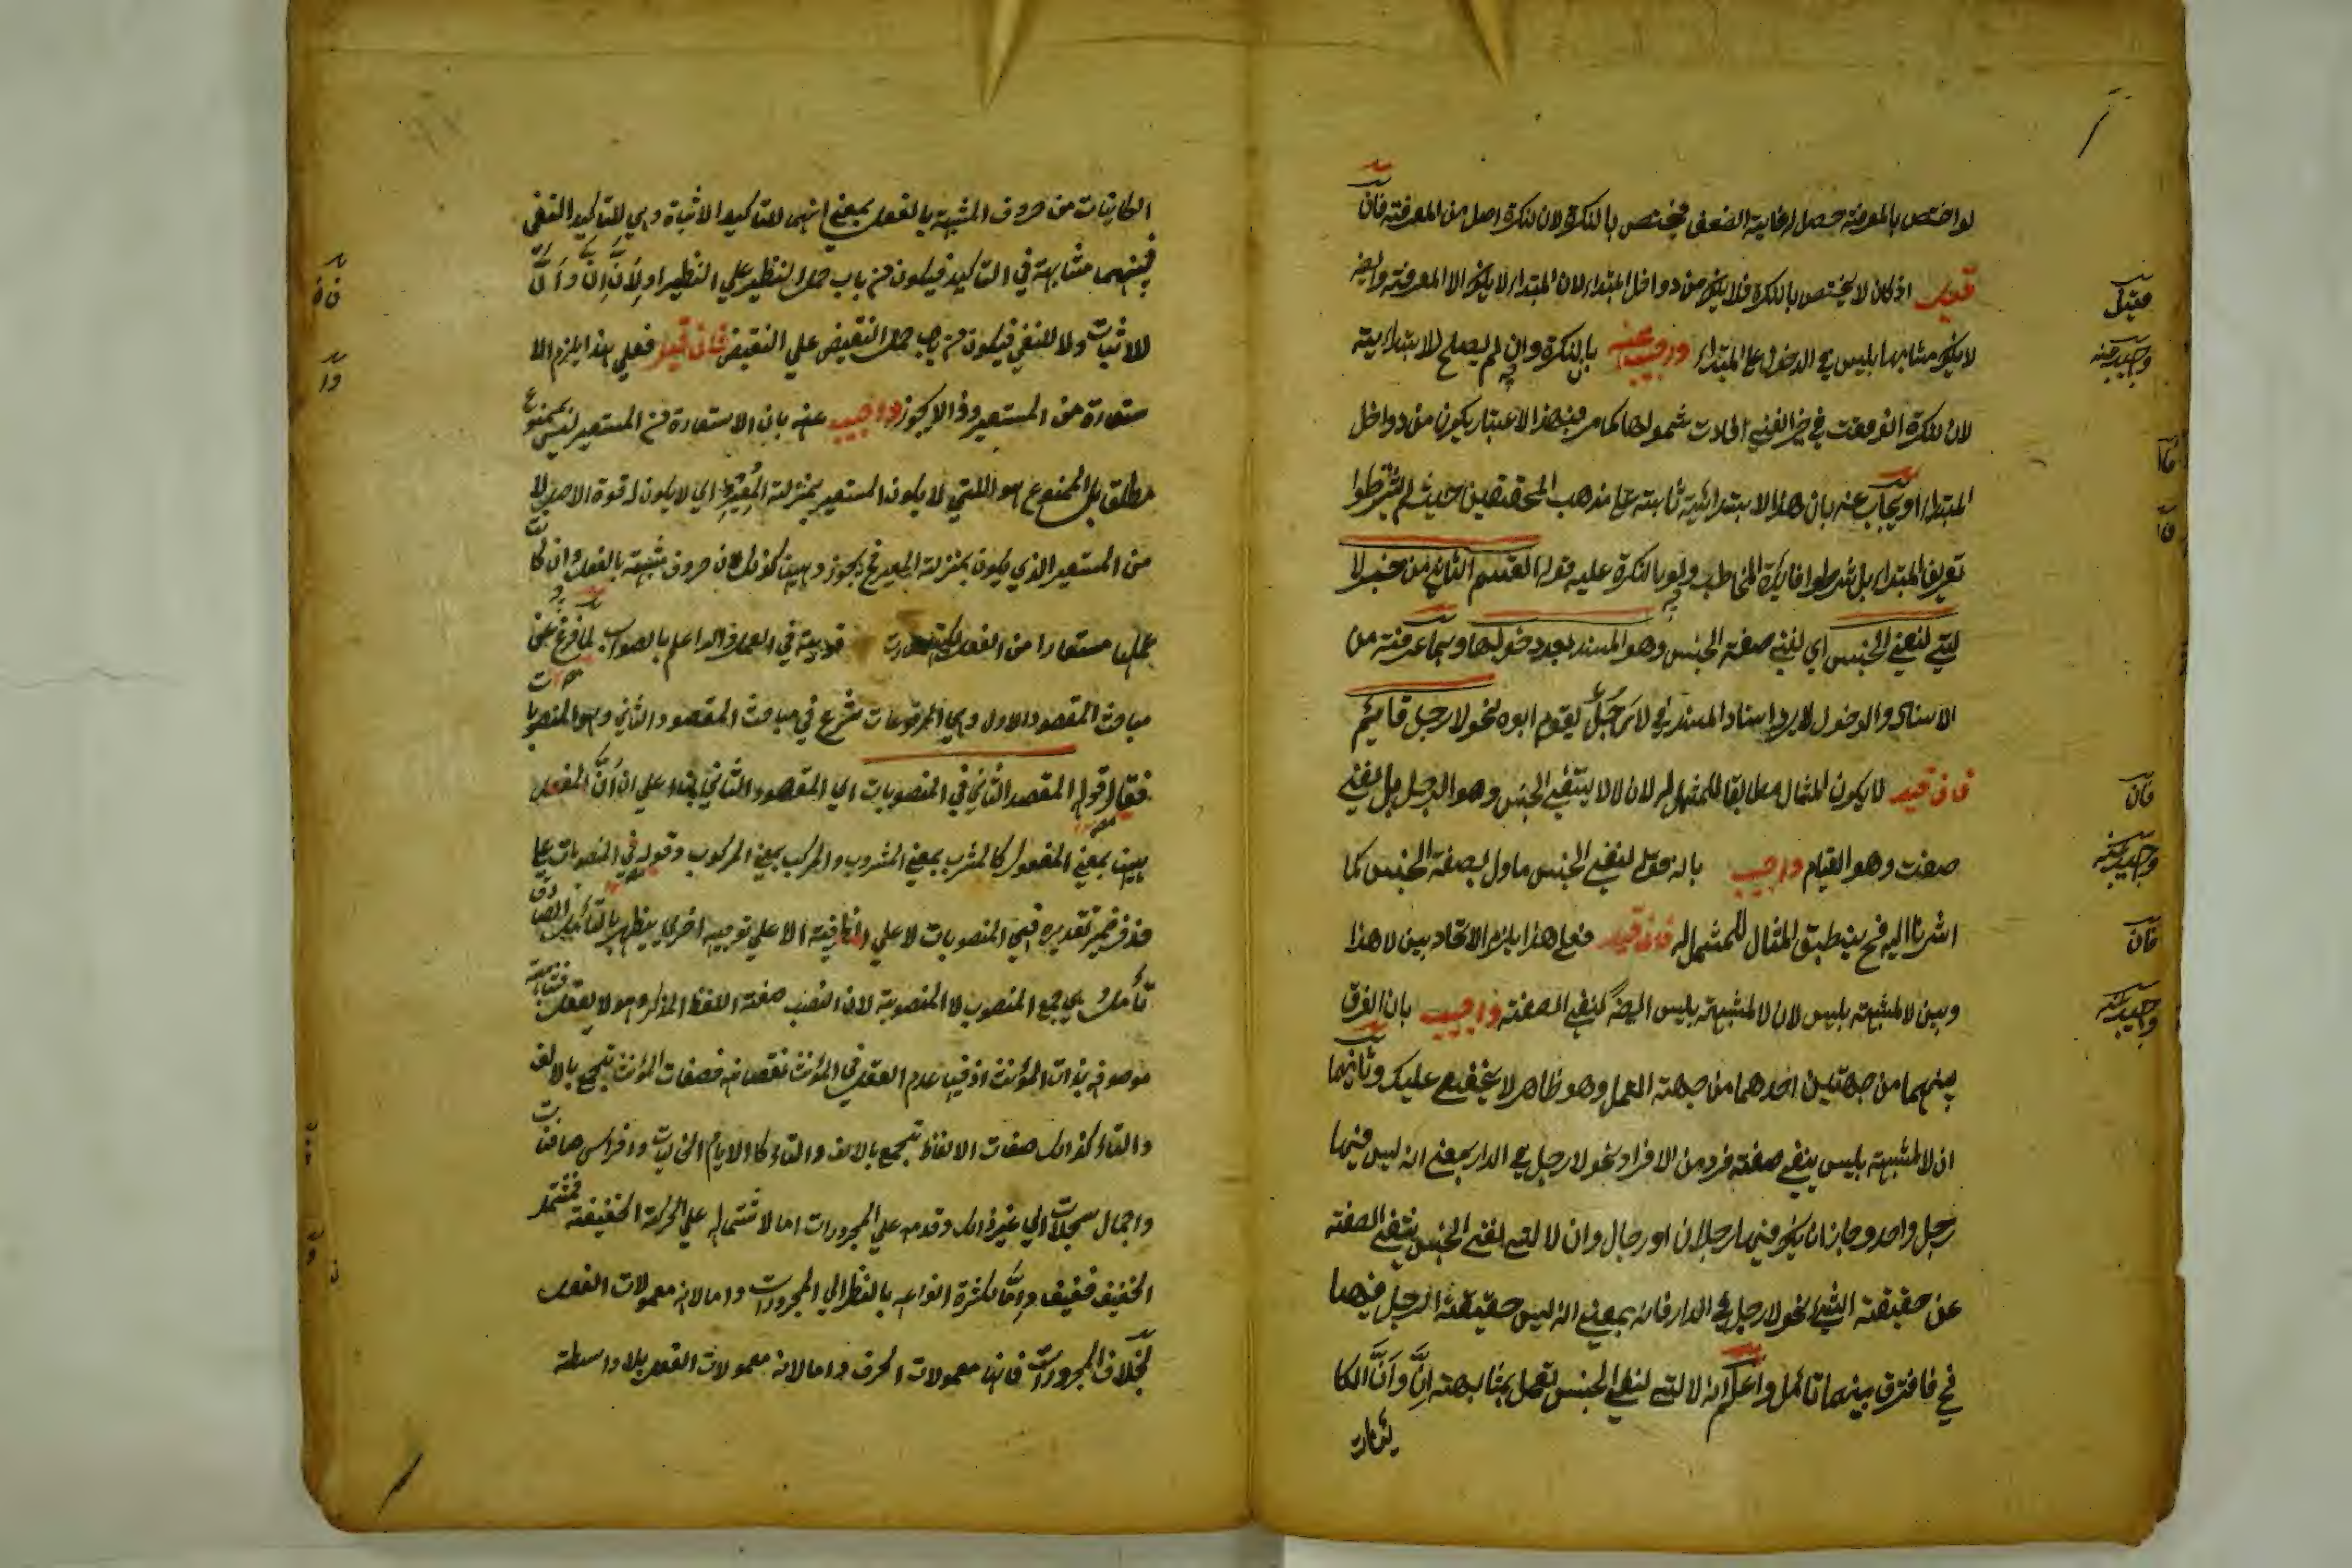 لو اختص بالمعرفة حصل له غاية الضعف فيختص بالنكرة لان النكرة اصل من المعرفة فان
قيل اذ كان لا يختص بالنكرة فلا يكون من دواخل المبتداء لان المبتداء لا يكون الا المعرفة وايضا
لا يكون مشابها بليس في الدخول على المبتداء واجيب عنه بان النكرة وان لم يصلح للابتدائية
لان النكرة اذ وقعت في حيز النفي افادت شمولها كما مر فبهذا الاعتبار يكون من دواخل
المبتداء او يجاب عنه بان هذا الابتدائية ثابتة على مذهب المحققين حيث لم يشترطوا
تعريف المبتداء بل شرطوا فائدة المخاطب ولو بالنكرة عليه قوله القسم الثاني من خبر لا
التي لنفي الجنس اي لنفي صفة الجنس وهو المسند بعد دخولها وبما عرفته من
الاسناد والدخول لا يرد اسناد المسند في لا رجل يقوم ابوه نحو لا رجل قائم
فان قيل لا يكون المثال مطابقا للممثل له لان لا لا ينفي الجنس وهو الرجل بل لنفي
صفت وهو القيام واجيب بانه قوله لنفي الجنس ماول بصفة الجنس كما
اشرنا اليه فح ينطبق المثال للممثل له فان قيل فعلى هذا يلزم الاتحاد بين لا هذا
وبين لا المشبهة بليس لان لا المشبهة بليس ايضا لنفي الصفة واجيب بان الفرق
بينهما من جهتين احدهما من جهة العمل وهو ظاهر لا يخفى عليك وثانيهما
ان لا المشبهة بليس ينفي صفة فرد من الافراد نحو لا رجل في الدار بمعنى انه ليس فيها
رجل واحد وجاز ان يكون فيها رجلان او رجال وان لا التي لنفي الجنس ينفي الصفة
عن حقيقة الشيء نحو لا رجل في الدار فانه بمعنى انه ليس حقيقة الرجل فيها
فح فافترق بينهما تامل واعلم ان لا التي لنفي الجنس تعمل بمشابهة اِنَّ وَاَنَّ الكا
ئنات
فقيل
واجيب عنه
فان
واجيب عنه
فان
واجيب عنه
الكائنات من حروف المشبهة بالفعل بمعنى انهما للتاكيد الاثبات وهي للتاكيد النفي
فبينهما مشابهة في التاكيد فيكون من باب حمل النظير على النظير او لان اِنَّ وَاَنَّ
للاثبات ولا للنفي فيكون من باب حمل النقيض على النقيض فان قيل فعلى هذا يلزم الا
ستعارة من المستعير وذا لا يجوز واجيب عنه بان الاستعارة من المستعير ليس بممنوع
مطلق بل الممنوع هو التي لا يكون المستعير بمنزلة المعير اي لا يكون له قوة الاصل
من المستعير الذي يكون بمنزلة المعير فح يجوز وههنا كذلك لان حروف مشبهة بالفعل وان كانت
عملها مستعارا من الفعل لكنها صارت قوية في العمل والله اعلم بالصواب لما فرغ عن
مباحث المقصود الاول وهي المرفوعات شرع في مباحث المقصود الثاني وهو المنصوبات
فقال قوله المقصد الثاني في المنصوبات اي المقصود الثاني بناء على ان المفعل
ههنا بمعنى المفعول كالمشرب بمعنى المشروب والمركب بمعنى المركوب وقوله في المنصوبات على
حذف خبر تقديره فهي المنصوبات لا على الظرفية الا على توجيه اخرى يظهر بالتامل الصادق
تامل وهي جمع المنصوب لا المنصوبة لان النصب صفة اللفظ المذكر وهو لا يعقل
موصوفه بذات المؤنث اذ فيها عدم العقل في المؤنث نقصانه فصفات المؤنث تجمع بالالف
والتاء كذلك صفات الالفاظ تجمع بالالف والتاء كالايام الخاليات وافراس صافنات
واجمال سبحلات الى غير ذلك وقدمه على المجرورات اما لاشتماله على الحركة الخفيفة فمشتمل
الخفيف خفيف واما لكثرة انواعه بالنظر الى المجرورات واما لانه معمولات الفعل
بخلاف المجرورات فانها معمولات الحرف واما لانه معمولات الفعل بلا واسطة